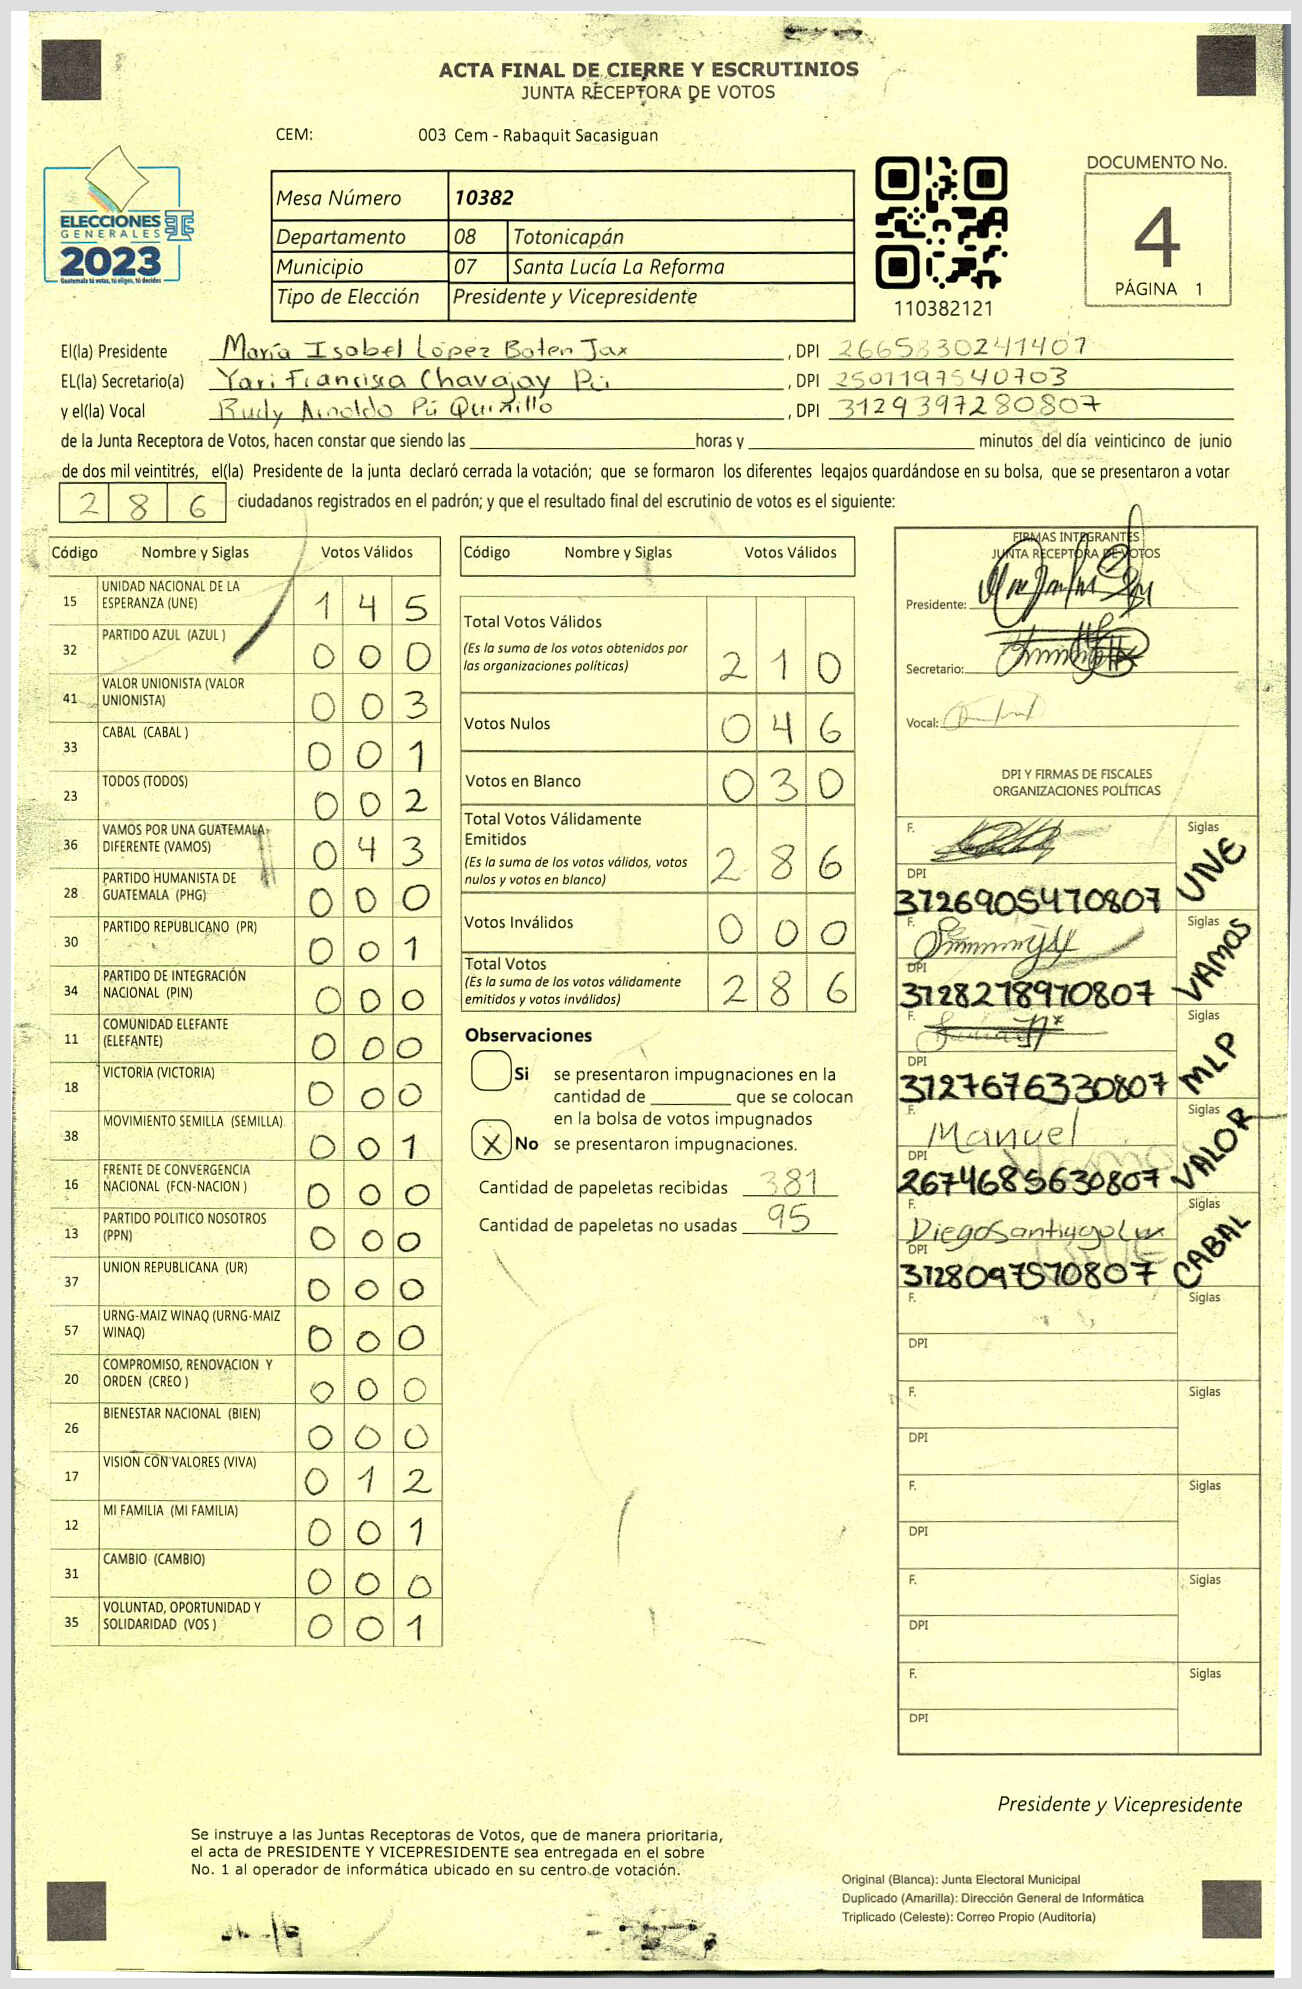 ACTA FINAL DE CIERRE Y ESCRUTINIOS
JUNTA RECEPTORA DE VOTOS
CEM: 003 Cem - Rabaquit Sacasiguan
ELECCIONES
GENERALES
2023
Guatemala tú votas, tú eliges, tú decides
Mesa Número 10382
Departamento 08 Totonicapán
Municipio 07 Santa Lucía La Reforma
Tipo de Elección Presidente y Vicepresidente
110382121
DOCUMENTO No.
4
PÁGINA 1
El(la) Presidente María Isabel López Baten Jax , DPI 2665830241407
EL(la) Secretario(a) Yari Francisca Chavajay Pú , DPI 2501197540703
y el(la) Vocal Rudy Arnoldo Pú Quinillo , DPI 3129397280807
de la Junta Receptora de Votos, hacen constar que siendo las horas y minutos del día veinticinco de junio
de dos mil veintitrés, el(la) Presidente de la junta declaró cerrada la votación; que se formaron los diferentes legajos guardándose en su bolsa, que se presentaron a votar
2 8 6 ciudadanos registrados en el padrón; y que el resultado final del escrutinio de votos es el siguiente:
Código Nombre y Siglas Votos Válidos
15 UNIDAD NACIONAL DE LA ESPERANZA (UNE) 1 4 5
32 PARTIDO AZUL (AZUL ) 0 0 0
41 VALOR UNIONISTA (VALOR UNIONISTA) 0 0 3
33 CABAL (CABAL ) 0 0 1
23 TODOS (TODOS) 0 0 2
36 VAMOS POR UNA GUATEMALA DIFERENTE (VAMOS) 0 4 3
28 PARTIDO HUMANISTA DE GUATEMALA (PHG) 0 0 0
30 PARTIDO REPUBLICANO (PR) 0 0 1
34 PARTIDO DE INTEGRACIÓN NACIONAL (PIN) 0 0 0
11 COMUNIDAD ELEFANTE (ELEFANTE) 0 0 0
18 VICTORIA (VICTORIA) 0 0 0
38 MOVIMIENTO SEMILLA (SEMILLA) 0 0 1
16 FRENTE DE CONVERGENCIA NACIONAL (FCN-NACION ) 0 0 0
13 PARTIDO POLITICO NOSOTROS (PPN) 0 0 0
37 UNION REPUBLICANA (UR) 0 0 0
57 URNG-MAIZ WINAQ (URNG-MAIZ WINAQ) 0 0 0
20 COMPROMISO, RENOVACION Y ORDEN (CREO ) 0 0 0
26 BIENESTAR NACIONAL (BIEN) 0 0 0
17 VISION CON VALORES (VIVA) 0 1 2
12 MI FAMILIA (MI FAMILIA) 0 0 1
31 CAMBIO (CAMBIO) 0 0 0
35 VOLUNTAD, OPORTUNIDAD Y SOLIDARIDAD (VOS ) 0 0 1
Código Nombre y Siglas Votos Válidos
Total Votos Válidos
(Es la suma de los votos obtenidos por
las organizaciones políticas) 2 1 0
Votos Nulos 0 4 6
Votos en Blanco 0 3 0
Total Votos Válidamente
Emitidos
(Es la suma de los votos válidos, votos
nulos y votos en blanco) 2 8 6
Votos Inválidos 0 0 0
Total Votos
(Es la suma de los votos válidamente
emitidos y votos inválidos) 2 8 6
Observaciones
Si se presentaron impugnaciones en la
cantidad de que se colocan
en la bolsa de votos impugnados
X No se presentaron impugnaciones.
Cantidad de papeletas recibidas 381
Cantidad de papeletas no usadas 95
FIRMAS INTEGRANTES
JUNTA RECEPTORA DE VOTOS
Presidente:
Secretario:
Vocal:
DPI Y FIRMAS DE FISCALES
ORGANIZACIONES POLÍTICAS
F. Siglas UNE
DPI
3126905470807
F. Siglas VAMOS
DPI
3128278970807
F. Siglas MLP
DPI
3127676330807
F. Manuel Siglas VALOR
DPI
2674685630807
F. Diego Santiago Lux Siglas CABAL
DPI
3128097570807
F. Siglas
DPI
F. Siglas
DPI
F. Siglas
DPI
F. Siglas
DPI
F. Siglas
DPI
Presidente y Vicepresidente
Se instruye a las Juntas Receptoras de Votos, que de manera prioritaria,
el acta de PRESIDENTE Y VICEPRESIDENTE sea entregada en el sobre
No. 1 al operador de informática ubicado en su centro de votación.
Original (Blanca): Junta Electoral Municipal
Duplicado (Amarilla): Dirección General de Informática
Triplicado (Celeste): Correo Propio (Auditoría)